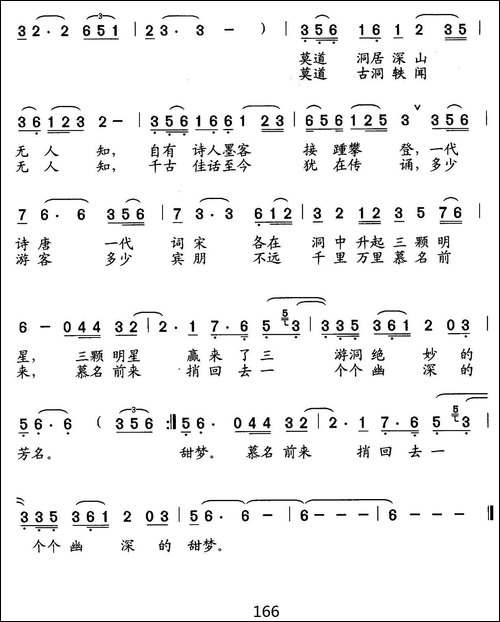 3 2 · 2 6 5 1 | 2 3 · 3 - ) | 3 5 6 1 · 6 1 2 3 5 |
莫道 洞居深山
莫道 古洞轶闻
3 6 1 2 3 2 - | 3 5 6 1 6 6 1 2 3 | 6 5 6 1 2 5 3 3 5 6 |
无人知, 自有诗人墨客 接踵攀登,一代
无人知, 千古佳话至今 犹在传诵,多少
7 6 · 6 3 5 6 | 7 3 · 3 6 1 2 | 3 2 1 2 3 5 7 6 |
诗唐 一代 词宋 各在 洞中升起三颗明
游客 多少 宾朋 不远 千里万里慕名前
6 - 0 4 4 3 2 | 2 · 1 7 · 6 5 3 | 3 3 5 3 6 1 2 0 3 |
星, 三颗明星 赢来了三 游洞绝妙的
来, 慕名前来 捎回去一 个个幽深的
5 6 · 6 ( 3 5 6 :| 5 6 · 0 4 4 3 2 | 2 · 1 7 · 6 5 3 |
芳名。 甜梦。 慕名前来 捎回去一
3 3 5 3 6 1 2 0 3 | 5 6 · 6 - | 6 - - 6 - | 6 - - - ‖
个个幽深的甜梦。
166